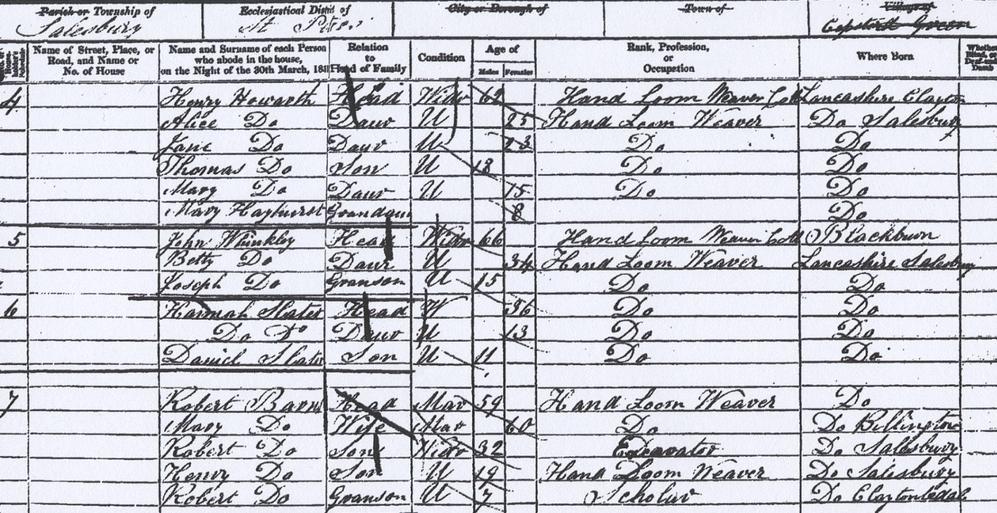 Parish or Township of Ecclesiastical District of City or Borough of Town of Village of
Salesbury St Peter
Name of Street, Place, or Road, and Name or No. of House Name and Surname of each Person who abode in the house, on the Night of the 30th March, 1851 Relation to Head of Family Condition Age of Males Females Rank, Profession, or Occupation Where Born Whether Blind, or Deaf-and-Dumb
4 Henry Howarth Head Widr 62 Hand Loom Weaver Cott Lancashire Clayton
Alice Do Daur U 25 Hand Loom Weaver Do Salesbury
Jane Do Daur U 23 Do Do
Thomas Do Son U 18 Do Do
Mary Do Daur U 15 Do Do
Mary Hayhurst Grandaur 8 Do
5 John Whinkley Head Widr 66 Hand Loom Weaver Cott Blackburn
Betty Do Daur U 34 Hand Loom Weaver Lancashire Salesbury
Joseph Do Granson U 15 Do Do
6 Hannah Slater Head W 36 Do Do
Do Do Daur U 13 Do Do
Daniel Slater Son U 11 Do Do
7 Robert Barn Head Mar 59 Hand Loom Weaver Do
Mary Do Wife Mar 60 Do Do Billington
Robert Do Son Widr 32 Excavator Do Salesbury
Henry Do Son U 19 Hand Loom Weaver Do Salesbury
Robert Do Granson U 7 Scholar Do Claytonledale